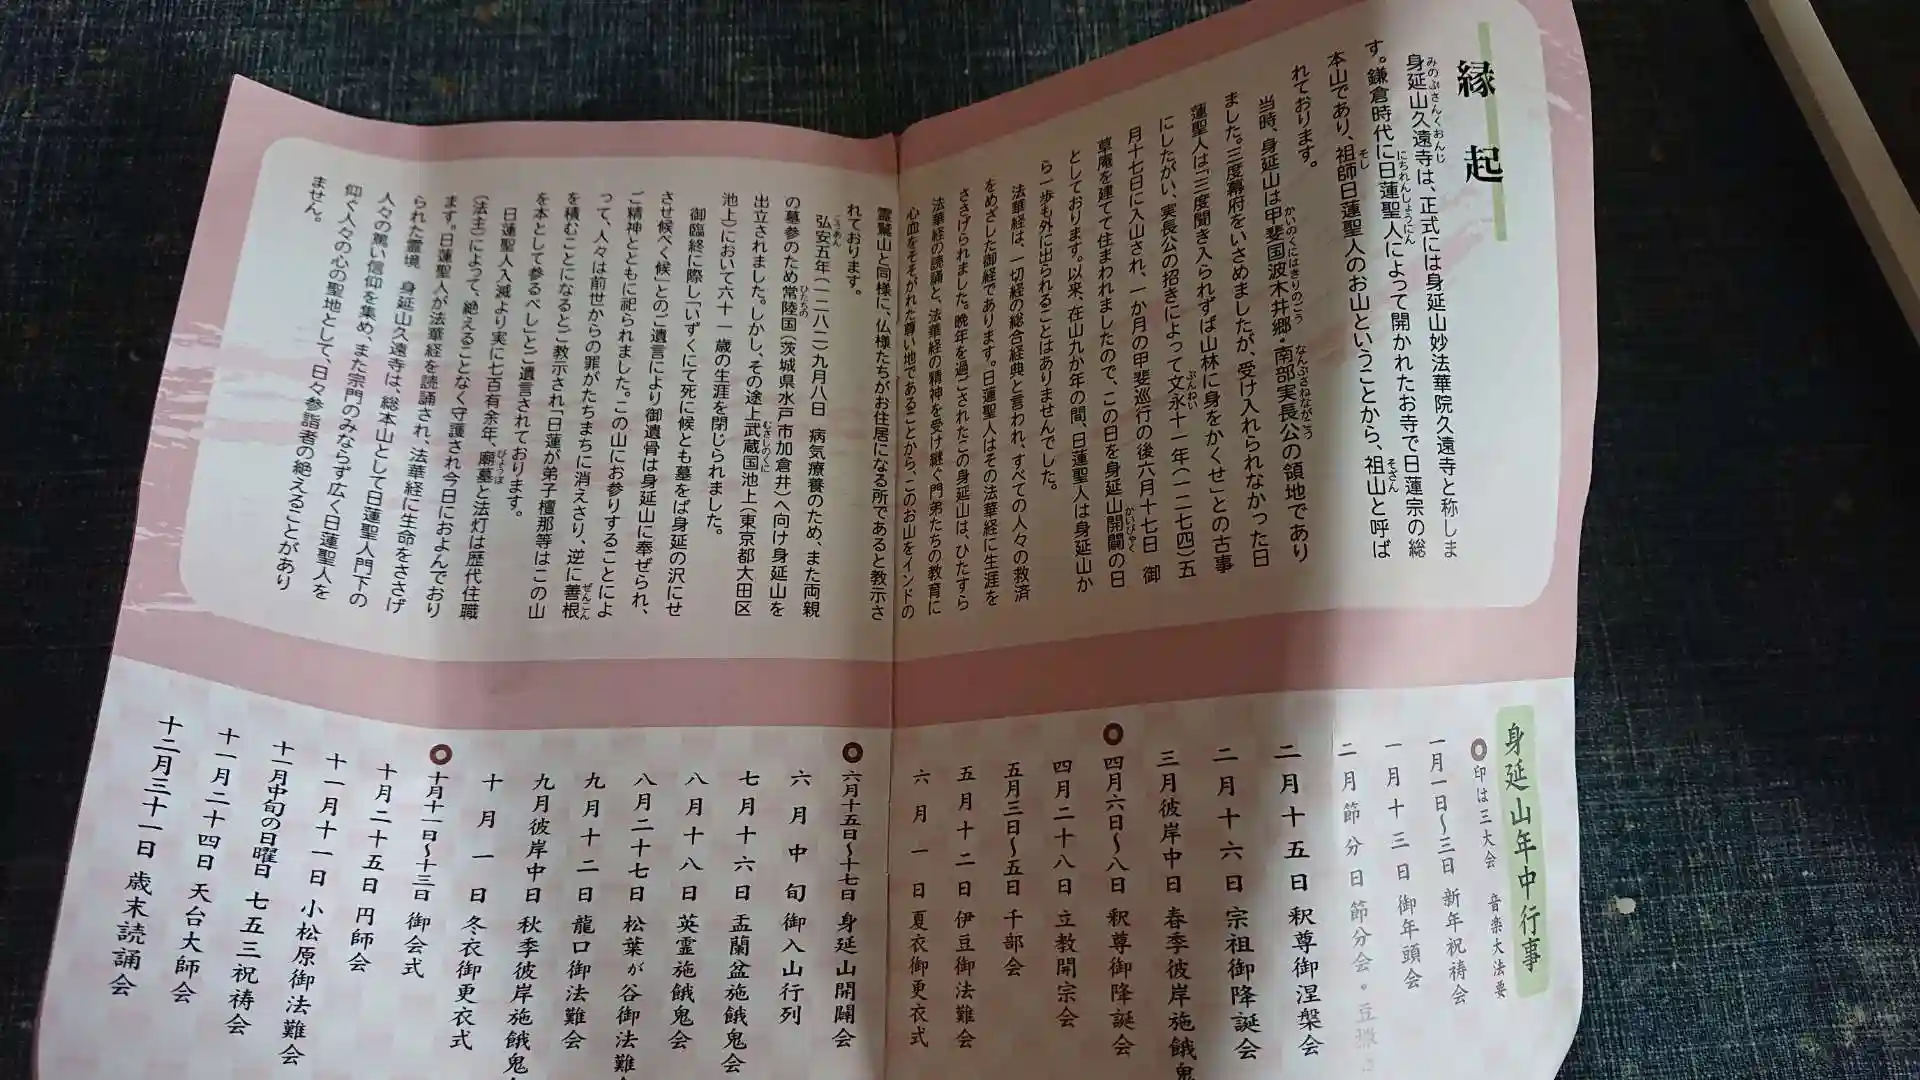 縁起
身延山久遠寺は、正式には身延山妙法華院久遠寺と称しま
す。鎌倉時代に日蓮聖人によって開かれたお寺で日蓮宗の総
本山であり、祖師日蓮聖人のお山ということから、祖山と呼ば
れております。
当時、身延山は甲斐国波木井郷・南部実長公の領地であり
ました。三度幕府をいさめましたが、受け入れられなかった日
蓮聖人は「三度聞き入られずば山林に身をかくせ」との古事
にしたがい、実長公の招きによって文永十一年(一二七四)五
月十七日に入山され、一か月の甲斐巡行の後六月十七日 御
草庵を建てて住まわれましたので、この日を身延山開闢の日
としております。以来、在山九か年の間、日蓮聖人は身延山か
ら一歩も外に出られることはありませんでした。
法華経は、一切経の総合経典と言われ、すべての人々の救済
をめざした御経であります。日蓮聖人はその法華経に生涯を
ささげられました。晩年を過ごされたこの身延山は、ひたすら
法華経の読誦と、法華経の精神を受け継ぐ門弟たちの教育に
心血をそそがれた尊い地であることから、このお山をインドの
霊鷲山と同様に、仏様たちがお住居になる所であると教示さ
れております。
弘安五年(一二八二)九月八日 病気療養のため、また両親
の墓参のため常陸国(茨城県水戸市加倉井)へ向け身延山を
出立されました。しかし、その途上武蔵国池上(東京都大田区
池上)において六十一歳の生涯を閉じられました。
御臨終に際し「いずくにて死に候とも墓をば身延の沢にせ
させ候べく候」とのご遺言により御遺骨は身延山に奉ぜられ、
ご精神とともに祀られました。この山にお参りすることによ
って、人々は前世からの罪がたちまちに消えさり、逆に善根
を積むことになるとご教示され「日蓮が弟子檀那等はこの山
を本として参るべし」とご遺言されております。
日蓮聖人入滅より実に七百有余年、廟墓と法灯は歴代住職
(法主)によって、絶えることなく守護され今日におよんでおり
ます。日蓮聖人が法華経を読誦され、法華経に生命をささげ
られた霊境 身延山久遠寺は、総本山として日蓮聖人門下の
人々の篤い信仰を集め、また宗門のみならず広く日蓮聖人を
仰ぐ人々の心の聖地として、日々参詣者の絶えることがあり
ません。
身延山年中行事
◎印は三大会 音楽大法要
一月一日〜三日 新年祝祷会
一月十三日 御年頭会
二月節分日 節分会・豆撒き
二月十五日 釈尊御涅槃会
二月十六日 宗祖御降誕会
三月彼岸中日 春季彼岸施餓鬼
◎四月六日〜八日 釈尊御降誕会
四月二十八日 立教開宗会
五月三日〜五日 千部会
五月十二日 伊豆御法難会
六月一日 夏衣御更衣式
◎六月十五日〜十七日 身延山開闢会
六月中旬 御入山行列
七月十六日 盂蘭盆施餓鬼会
八月十八日 英霊施餓鬼会
八月二十七日 松葉が谷御法難会
九月十二日 龍口御法難会
九月彼岸中日 秋季彼岸施餓鬼
十月一日 冬衣御更衣式
◎十月十一日〜十三日 御会式
十月二十五日 円師会
十一月十一日 小松原御法難会
十一月中旬の日曜日 七五三祝祷会
十一月二十四日 天台大師会
十二月三十一日 歳末読誦会